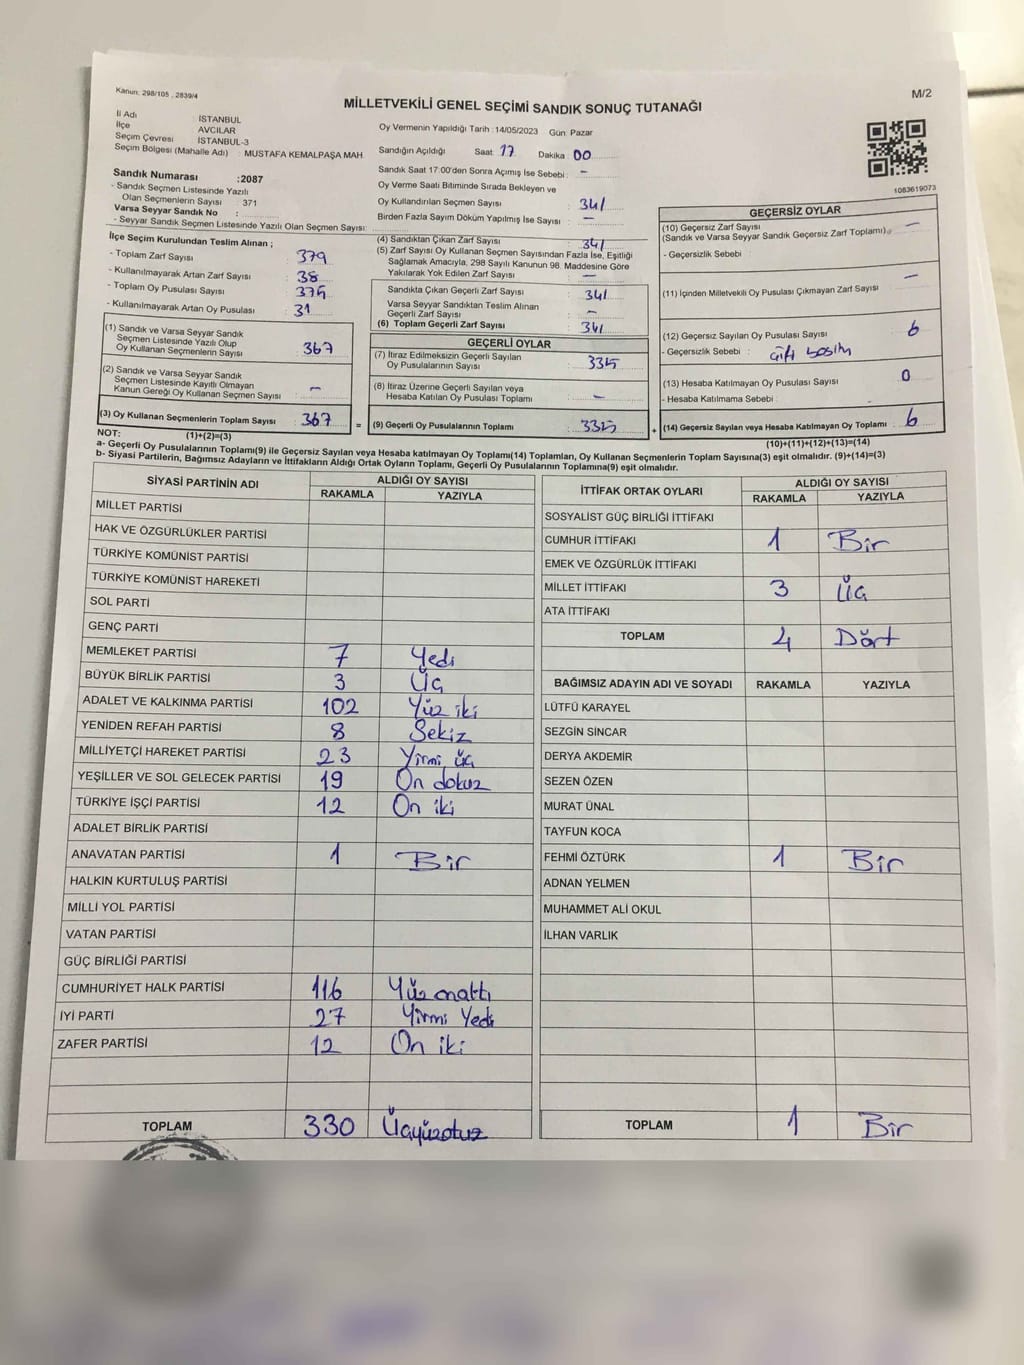 Kanun: 298/105 , 2839/4
M/2
MİLLETVEKİLİ GENEL SEÇİMİ SANDIK SONUÇ TUTANAĞI
İl Adı : İSTANBUL
İlçe AVCILAR
Seçim Çevresi : İSTANBUL-3
Seçim Bölgesi (Mahalle Adı) : MUSTAFA KEMALPAŞA MAH
Sandık Numarası :2087
- Sandık Seçmen Listesinde Yazılı
Olan Seçmenlerin Sayısı : 371
Varsa Seyyar Sandık No :
- Seyyar Sandık Seçmen Listesinde Yazılı Olan Seçmen Sayısı:
Oy Vermenin Yapıldığı Tarih : 14/05/2023 Gün: Pazar
Sandığın Açıldığı Saat : 17 Dakika : 00
Sandık Saat 17:00'den Sonra Açımış İse Sebebi : -
Oy Verme Saati Bitiminde Sırada Bekleyen ve
Oy Kullandırılan Seçmen Sayısı : 341
Birden Fazla Sayım Döküm Yapılmış İse Sayısı : -
1083619073
İlçe Seçim Kurulundan Teslim Alınan ;
- Toplam Zarf Sayısı : 379
- Kullanılmayarak Artan Zarf Sayısı : 38
- Toplam Oy Pusulası Sayısı : 375
- Kullanılmayarak Artan Oy Pusulası : 31
(1) Sandık ve Varsa Seyyar Sandık
Seçmen Listesinde Yazılı Olup
Oy Kullanan Seçmenlerin Sayısı : 367
(2) Sandık ve Varsa Seyyar Sandık
Seçmen Listesinde Kayıtlı Olmayan
Kanun Gereği Oy Kullanan Seçmen Sayısı : -
(3) Oy Kullanan Seçmenlerin Toplam Sayısı : 367
(4) Sandıktan Çıkan Zarf Sayısı : 341
(5) Zarf Sayısı Oy Kullanan Seçmen Sayısından Fazla İse, Eşitliği
Sağlamak Amacıyla, 298 Sayılı Kanunun 98. Maddesine Göre
Yakılarak Yok Edilen Zarf Sayısı : -
Sandıkta Çıkan Geçerli Zarf Sayısı : 341
Varsa Seyyar Sandıktan Teslim Alınan
Geçerli Zarf Sayısı : -
(6) Toplam Geçerli Zarf Sayısı : 341
GEÇERLİ OYLAR
(7) İtiraz Edilmeksizin Geçerli Sayılan
Oy Pusulalarının Sayısı : 335
(8) İtiraz Üzerine Geçerli Sayılan veya
Hesaba Katılan Oy Pusulası Toplamı : -
= (9) Geçerli Oy Pusulalarının Toplamı : 335
GEÇERSİZ OYLAR
(10) Geçersiz Zarf Sayısı
(Sandık ve Varsa Seyyar Sandık Geçersiz Zarf Toplamı) -
- Geçersizlik Sebebi :
(11) İçinden Milletvekili Oy Pusulası Çıkmayan Zarf Sayısı -
(12) Geçersiz Sayılan Oy Pusulası Sayısı : 6
- Geçersizlik Sebebi : çift basım
(13) Hesaba Katılmayan Oy Pusulası Sayısı : 0
- Hesaba Katılmama Sebebi :
+ (14) Geçersiz Sayılan veya Hesaba Katılmayan Oy Toplamı : 6
NOT: (1)+(2)=(3)
(10)+(11)+(12)+(13)=(14)
a- Geçerli Oy Pusulalarının Toplamı(9) ile Geçersiz Sayılan veya Hesaba katılmayan Oy Toplamı(14) Toplamları, Oy Kullanan Seçmenlerin Toplam Sayısına(3) eşit olmalıdır. (9)+(14)=(3)
b- Siyasi Partilerin, Bağımsız Adayların ve İttifakların Aldığı Ortak Oyların Toplamı, Geçerli Oy Pusulalarının Toplamına(9) eşit olmalıdır.
SİYASİ PARTİNİN ADI ALDIĞI OY SAYISI
RAKAMLA YAZIYLA
MİLLET PARTİSİ
HAK VE ÖZGÜRLÜKLER PARTİSİ
TÜRKİYE KOMÜNİST PARTİSİ
TÜRKİYE KOMÜNİST HAREKETİ
SOL PARTİ
GENÇ PARTİ
MEMLEKET PARTİSİ 7 Yedi
BÜYÜK BİRLİK PARTİSİ 3 Üç
ADALET VE KALKINMA PARTİSİ 102 Yüz iki
YENİDEN REFAH PARTİSİ 8 Sekiz
MİLLİYETÇİ HAREKET PARTİSİ 23 Yirmi üç
YEŞİLLER VE SOL GELECEK PARTİSİ 19 On dokuz
TÜRKİYE İŞÇİ PARTİSİ 12 On iki
ADALET BİRLİK PARTİSİ
ANAVATAN PARTİSİ 1 Bir
HALKIN KURTULUŞ PARTİSİ
MİLLİ YOL PARTİSİ
VATAN PARTİSİ
GÜÇ BİRLİĞİ PARTİSİ
CUMHURİYET HALK PARTİSİ 116 Yüz onaltı
İYİ PARTİ 27 Yirmi Yedi
ZAFER PARTİSİ 12 On iki
TOPLAM 330 Üçyüzotuz
İTTİFAK ORTAK OYLARI ALDIĞI OY SAYISI
RAKAMLA YAZIYLA
SOSYALİST GÜÇ BİRLİĞİ İTTİFAKI
CUMHUR İTTİFAKI 1 Bir
EMEK VE ÖZGÜRLÜK İTTİFAKI
MİLLET İTTİFAKI 3 Üç
ATA İTTİFAKI
TOPLAM 4 Dört
BAĞIMSIZ ADAYIN ADI VE SOYADI RAKAMLA YAZIYLA
LÜTFÜ KARAYEL
SEZGİN SİNCAR
DERYA AKDEMİR
SEZEN ÖZEN
MURAT ÜNAL
TAYFUN KOCA
FEHMİ ÖZTÜRK 1 Bir
ADNAN YELMEN
MUHAMMET ALİ OKUL
İLHAN VARLIK
TOPLAM 1 Bir